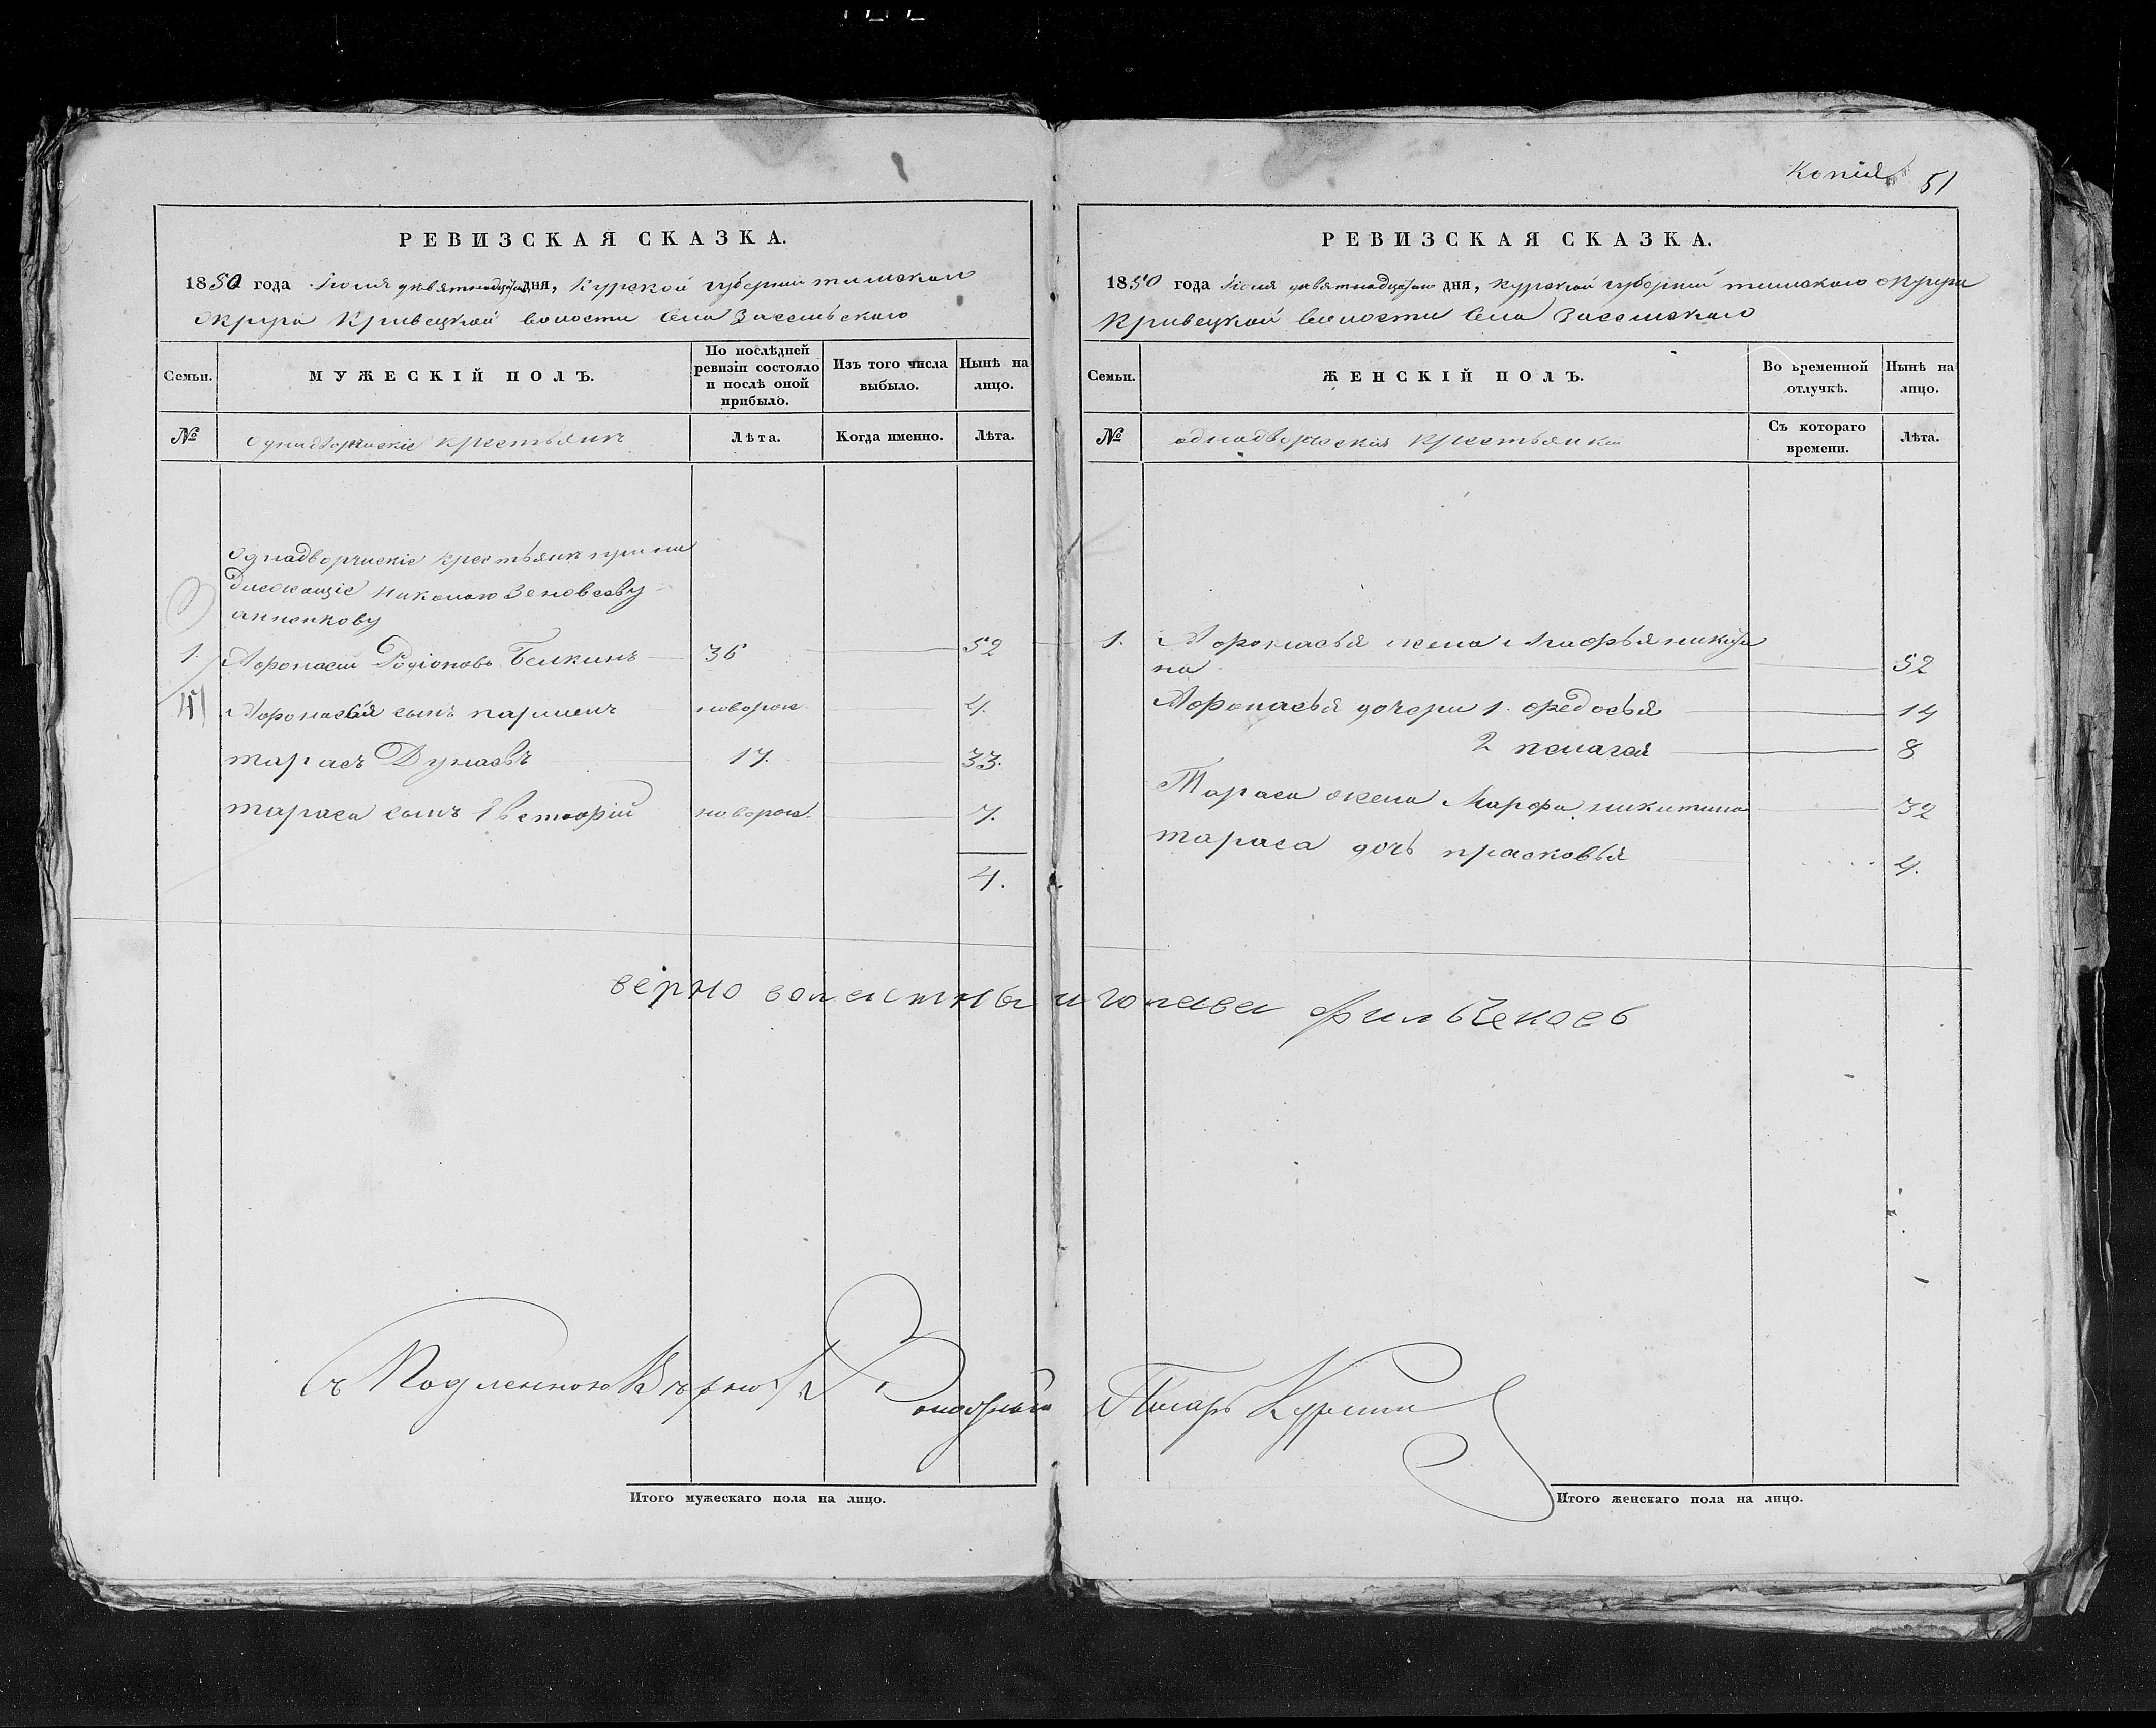 РЕВИЗСКАЯ СКАЗКА.
1850 года Июля девятнадцатаго дня, Курской губернии тимскаго
округа Кривецкой волости Села Засемьскаго
Семьи.
МУЖЕСКІЙ ПОЛЪ.
По послѣдней ревизіи состояло и послѣ оной прибыло.
Изъ того числа выбыло.
Нынѣ на лицо.
№
однадворчискіе крестьяне
Лѣта.
Когда именно.
Лѣта.
однадворчискіе крестьяне прина
длежащіе николаю Зеновееву
анненкову
1. Афонасей Родіоновъ Белкинъ 36 52
Афонасья сынъ парменъ новорож. 4.
тарасъ Дунаевъ 17. 33.
тараса сынъ новорож. 7.
4.
верно волостный голова
Съ Подленною Вѣрно
Итого мужескаго пола на лицо.
Копия 51
РЕВИЗСКАЯ СКАЗКА.
1850 года Июля девятнадцатаго дня, курской губернии тимскаго округа
Кривецкой волости Села Засемскаго
Семьи.
ЖЕНСКІЙ ПОЛЪ.
Во временной отлучкѣ.
Нынѣ на лицо.
№
однадворческия крестьянки
Съ котораго времени.
Лѣта.
1. Афонасья жена Агафья никити
на 52
Афонасья дочери 1. федосья 14
2 пелагея 8
Тараса жена Марфа никитина 32
тараса дочь прасковья 4.
Писарь
Итого женскаго пола на лицо.